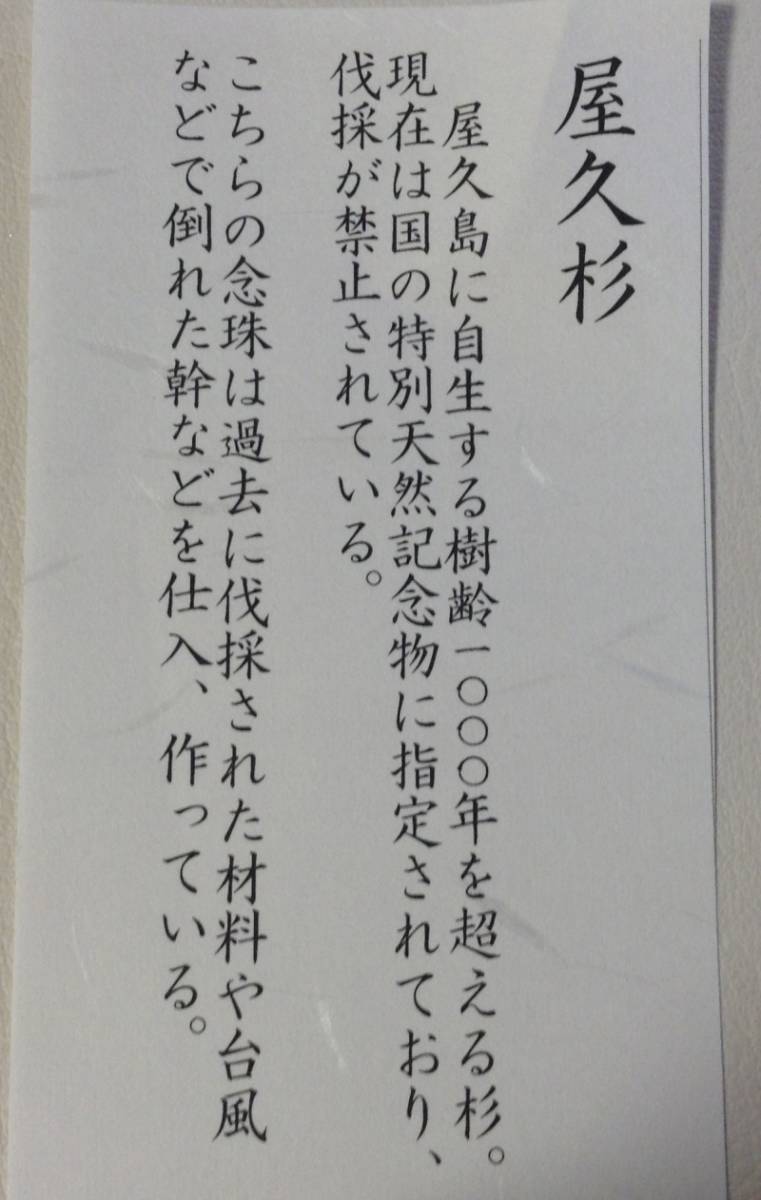 屋久杉
屋久島に自生する樹齢一〇〇〇年を超える杉。
現在は国の特別天然記念物に指定されており、
伐採が禁止されている。
こちらの念珠は過去に伐採された材料や台風
などで倒れた幹などを仕入、作っている。